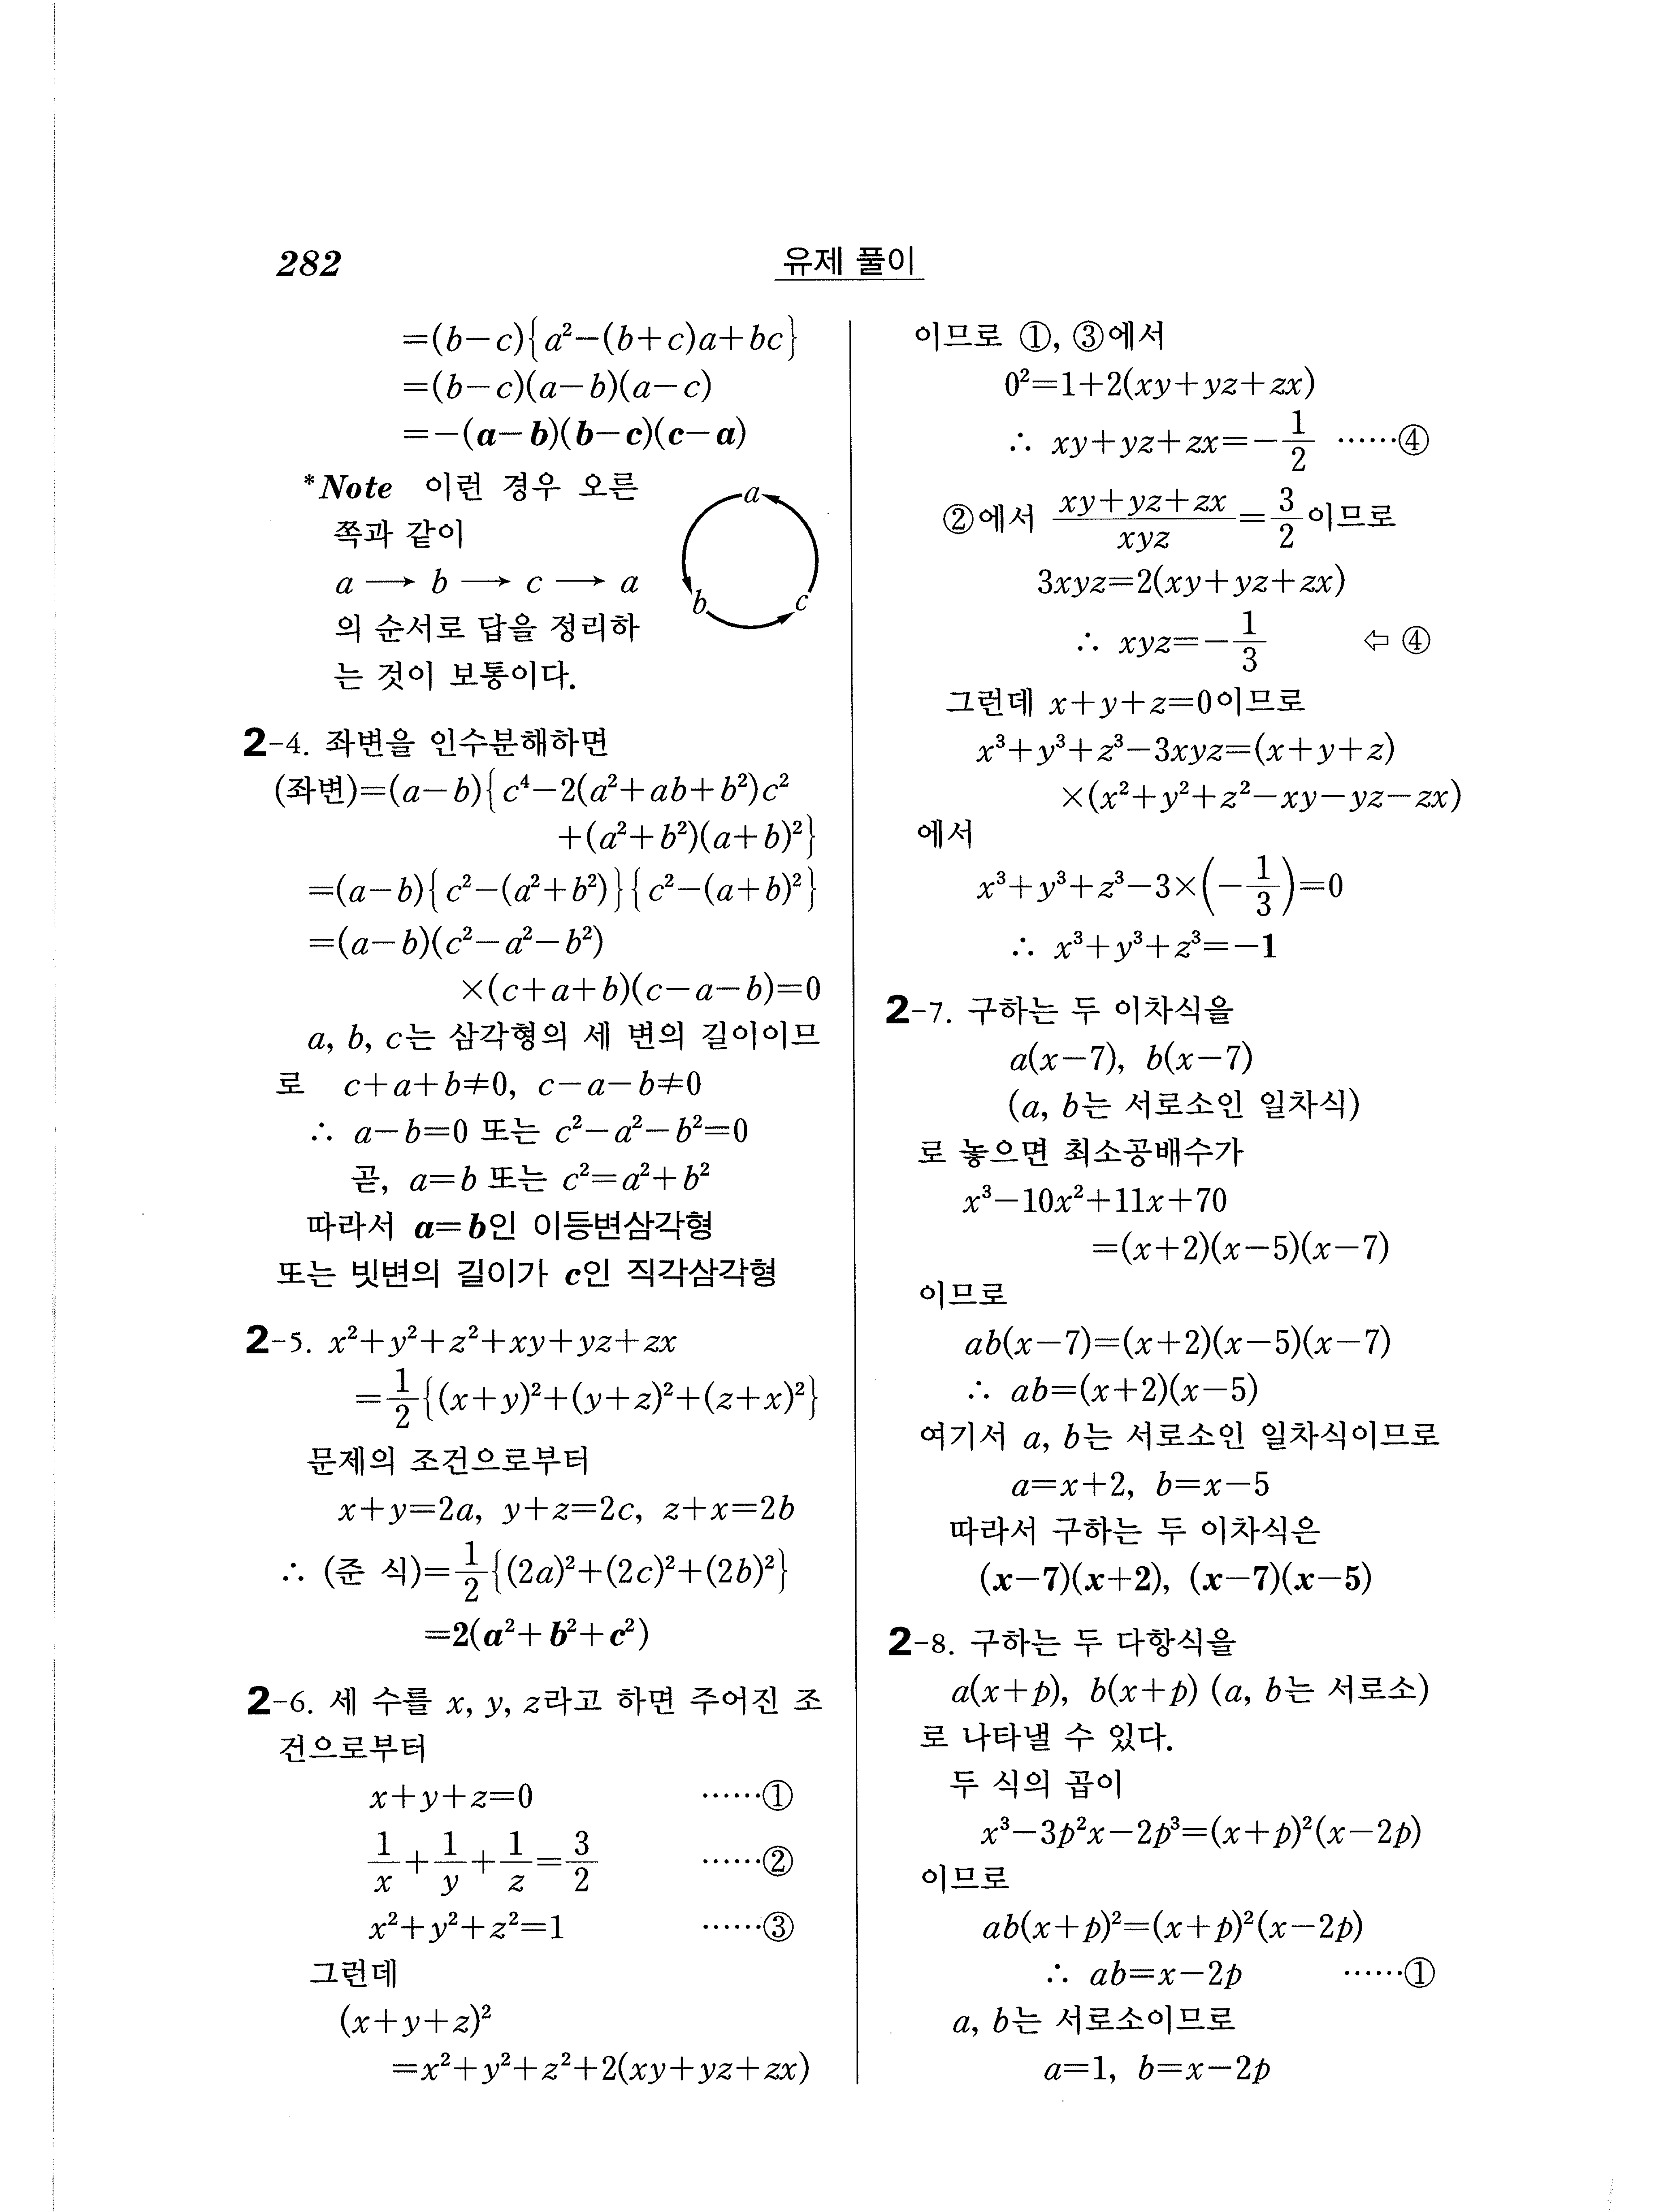 282
유제 풀이
=(b−c){a²−(b+c)a+bc}
=(b−c)(a−b)(a−c)
=−(a−b)(b−c)(c−a)
*Note 이런 경우 오른
쪽과 같이
a ⟶ b ⟶ c ⟶ a
의 순서로 답을 정리하
는 것이 보통이다.
a
b
c
2-4. 좌변을 인수분해하면
(좌변)=(a−b){c⁴−2(a²+ab+b²)c²
+(a²+b²)(a+b)²}
=(a−b){c²−(a²+b²)}{c²−(a+b)²}
=(a−b)(c²−a²−b²)
×(c+a+b)(c−a−b)=0
a, b, c는 삼각형의 세 변의 길이이므
로 c+a+b≠0, c−a−b≠0
∴ a−b=0 또는 c²−a²−b²=0
곧, a=b 또는 c²=a²+b²
따라서 a=b인 이등변삼각형
또는 빗변의 길이가 c인 직각삼각형
2-5. x²+y²+z²+xy+yz+zx
=1/2{(x+y)²+(y+z)²+(z+x)²}
문제의 조건으로부터
x+y=2a, y+z=2c, z+x=2b
∴ (준 식)=1/2{(2a)²+(2c)²+(2b)²}
=2(a²+b²+c²)
2-6. 세 수를 x, y, z라고 하면 주어진 조
건으로부터
x+y+z=0 ……①
1/x+1/y+1/z=3/2 ……②
x²+y²+z²=1 ……③
그런데
(x+y+z)²
=x²+y²+z²+2(xy+yz+zx)
이므로 ①, ③에서
0²=1+2(xy+yz+zx)
∴ xy+yz+zx=−1/2 ……④
②에서 (xy+yz+zx)/xyz=3/2이므로
3xyz=2(xy+yz+zx)
∴ xyz=−1/3 ⇦ ④
그런데 x+y+z=0이므로
x³+y³+z³−3xyz=(x+y+z)
×(x²+y²+z²−xy−yz−zx)
에서
x³+y³+z³−3×(−1/3)=0
∴ x³+y³+z³=−1
2-7. 구하는 두 이차식을
a(x−7), b(x−7)
(a, b는 서로소인 일차식)
로 놓으면 최소공배수가
x³−10x²+11x+70
=(x+2)(x−5)(x−7)
이므로
ab(x−7)=(x+2)(x−5)(x−7)
∴ ab=(x+2)(x−5)
여기서 a, b는 서로소인 일차식이므로
a=x+2, b=x−5
따라서 구하는 두 이차식은
(x−7)(x+2), (x−7)(x−5)
2-8. 구하는 두 다항식을
a(x+p), b(x+p) (a, b는 서로소)
로 나타낼 수 있다.
두 식의 곱이
x³−3p²x−2p³=(x+p)²(x−2p)
이므로
ab(x+p)²=(x+p)²(x−2p)
∴ ab=x−2p ……①
a, b는 서로소이므로
a=1, b=x−2p